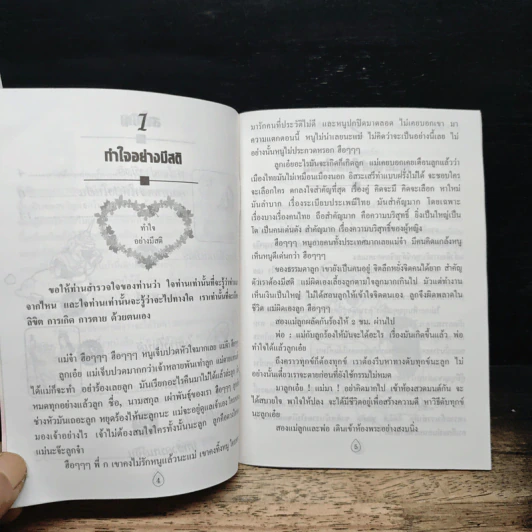 1
ทำใจอย่างมีสติ
ทำใจ
อย่างมีสติ
ขอให้ท่านสำรวจใจของท่านว่า ใจท่านเท่านั้นที่จะรู้ว่า
จากไหน และใจท่านเท่านั้นจะรู้ว่าจะไปทางใด เราเท่านั้น
ลิขิต การเกิด การตาย ด้วยตนเอง
แม่จ๋า ฮือๆๆๆ ฮือๆๆๆ หนูเจ็บปวดหัวใจมากเลย แม่
ลูกเอ๋ย แม่เจ็บปวดมากกว่าเจ้าหลายพันเท่าลูก
ได้แม่ก็จะทำ อย่าร้องเลยลูก มันเรียกอะไรคืนมาไม่ได้แล้ว
หมดทุกอย่างแล้วลูก ชื่อ, นามสกุล เผ่าพันธุ์ของเรา ฮือๆๆๆ
ช่างหัวมันเถอะลูก หยุดร้องไห้นะลูกนะ แม่จะอยู่ดูแลเจ้าเอง
มองเจ้าอย่างไร เจ้าไม่ต้องสนใจใครทั้งนั้นนะลูก
แม่นะจ๊ะลูกจ๋า
ฮือๆๆๆ พี่ ก เขาคงไม่รักหนูแล้วนะแม่ เขาคงทิ้งหนู
4
มารักคนที่ประวัติไม่ดี และหนูปกปิดมาตลอด ไม่เคยบอกเขา มา
ความแตกตอนนี้ หนูไม่น่าเลยนะแม่ ไม่คิดว่าจะเป็นอย่างนี้เลย ไม่
อย่างนั้นหนูไม่ประกวดหรอก ฮือๆๆๆ
ลูกเอ๋ยอะไรมันจะเกิดก็เกิดลูก แม่เคยบอกเคยเตือนลูกแล้วว่า
เมืองไทยมันไม่เหมือนเมืองนอก อิสระเสรีทำแบบฝรั่งไม่ได้ จะชอบใคร
จะเลือกใคร ตกลงใจสำคัญที่สุด เรื่องคู่ คิดจะมี คิดจะเลือก หาใหม่
มันลำบาก เรื่องระเบียบประเพณีไทย มันสำคัญมาก โดยเฉพาะ
เรื่องบางเรื่องคนไทย ถือสำคัญมาก คือความบริสุทธิ์ ยิ่งเป็นใหญ่เป็น
โต เป็นคนเด่นดัง สำคัญมาก เรื่องความบริสุทธิ์ของผู้หญิง
ฮือๆๆๆ หนูอายคนทั้งประเทศมากเลยแม่จ๋า มีคนคิดแกล้งหนู
เห็นหนูดีเด่นกว่า ฮือๆๆๆ
ของธรรมดาลูก เขายังเป็นคนอยู่ จิตลึกหยั่งจิตคนได้ยาก สำคัญ
ตัวเราต้องมีสติ แม่ผิดเองเลี้ยงลูกตามใจลูกมากเกินไป มัวแต่ทำงาน
เห็นเงินเป็นใหญ่ ไม่ได้สอนลูกให้เข้าใจจิตตนเอง ลูกจึงผิดพลาดใน
ชีวิต แม่ผิดเองลูก ฮือๆๆๆ
สองแม่ลูกผลัดกันร้องไห้ ๑ ชม. ผ่านไป
พ่อ : แม่กับลูกร้องไห้มันจะได้อะไร เรื่องมันเกิดขึ้นแล้ว พ่อ
ทำใจได้แล้วลูกเอ๋ย
ถึงคราวทุกข์ก็ต้องทุกข์ เราต้องรีบหาทางดับทุกข์นะลูก ไม่
อย่างนั้นเดี๋ยวเราจะตายก่อนที่ยังใช้กรรมไม่หมด
มาเถิดลูก ! แม่มา ! อย่าคิดมากไป เข้าห้องสวดมนต์กัน จะ
ได้สบายใจ พาใจให้ปลง จะได้มีชีวิตอยู่เพื่อสร้างความดี หาวิธีดับทุกข์
นะลูกเอ๋ย
สองแม่ลูกและพ่อ เดินเข้าห้องพระอย่างสงบนิ่ง
5